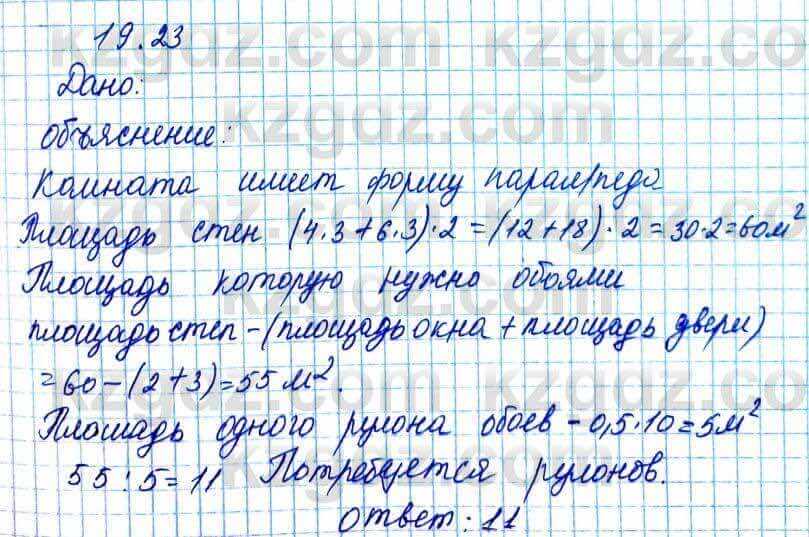 19.23
Дано:
объяснение:
Комната имеет форму парал/педа
Площадь стен (4·3+6·3)·2=(12+18)·2=30·2=60м²
Площадь которую нужно обоями
площадь стен-(площадь окна+площадь двери)
=60-(2+3)=55м².
Площадь одного рулона обоев-0,5·10=5м²
55:5=11 Потребуется рулонов.
ответ:11
kzgdz.com kzgdz.com
kzgdz.com